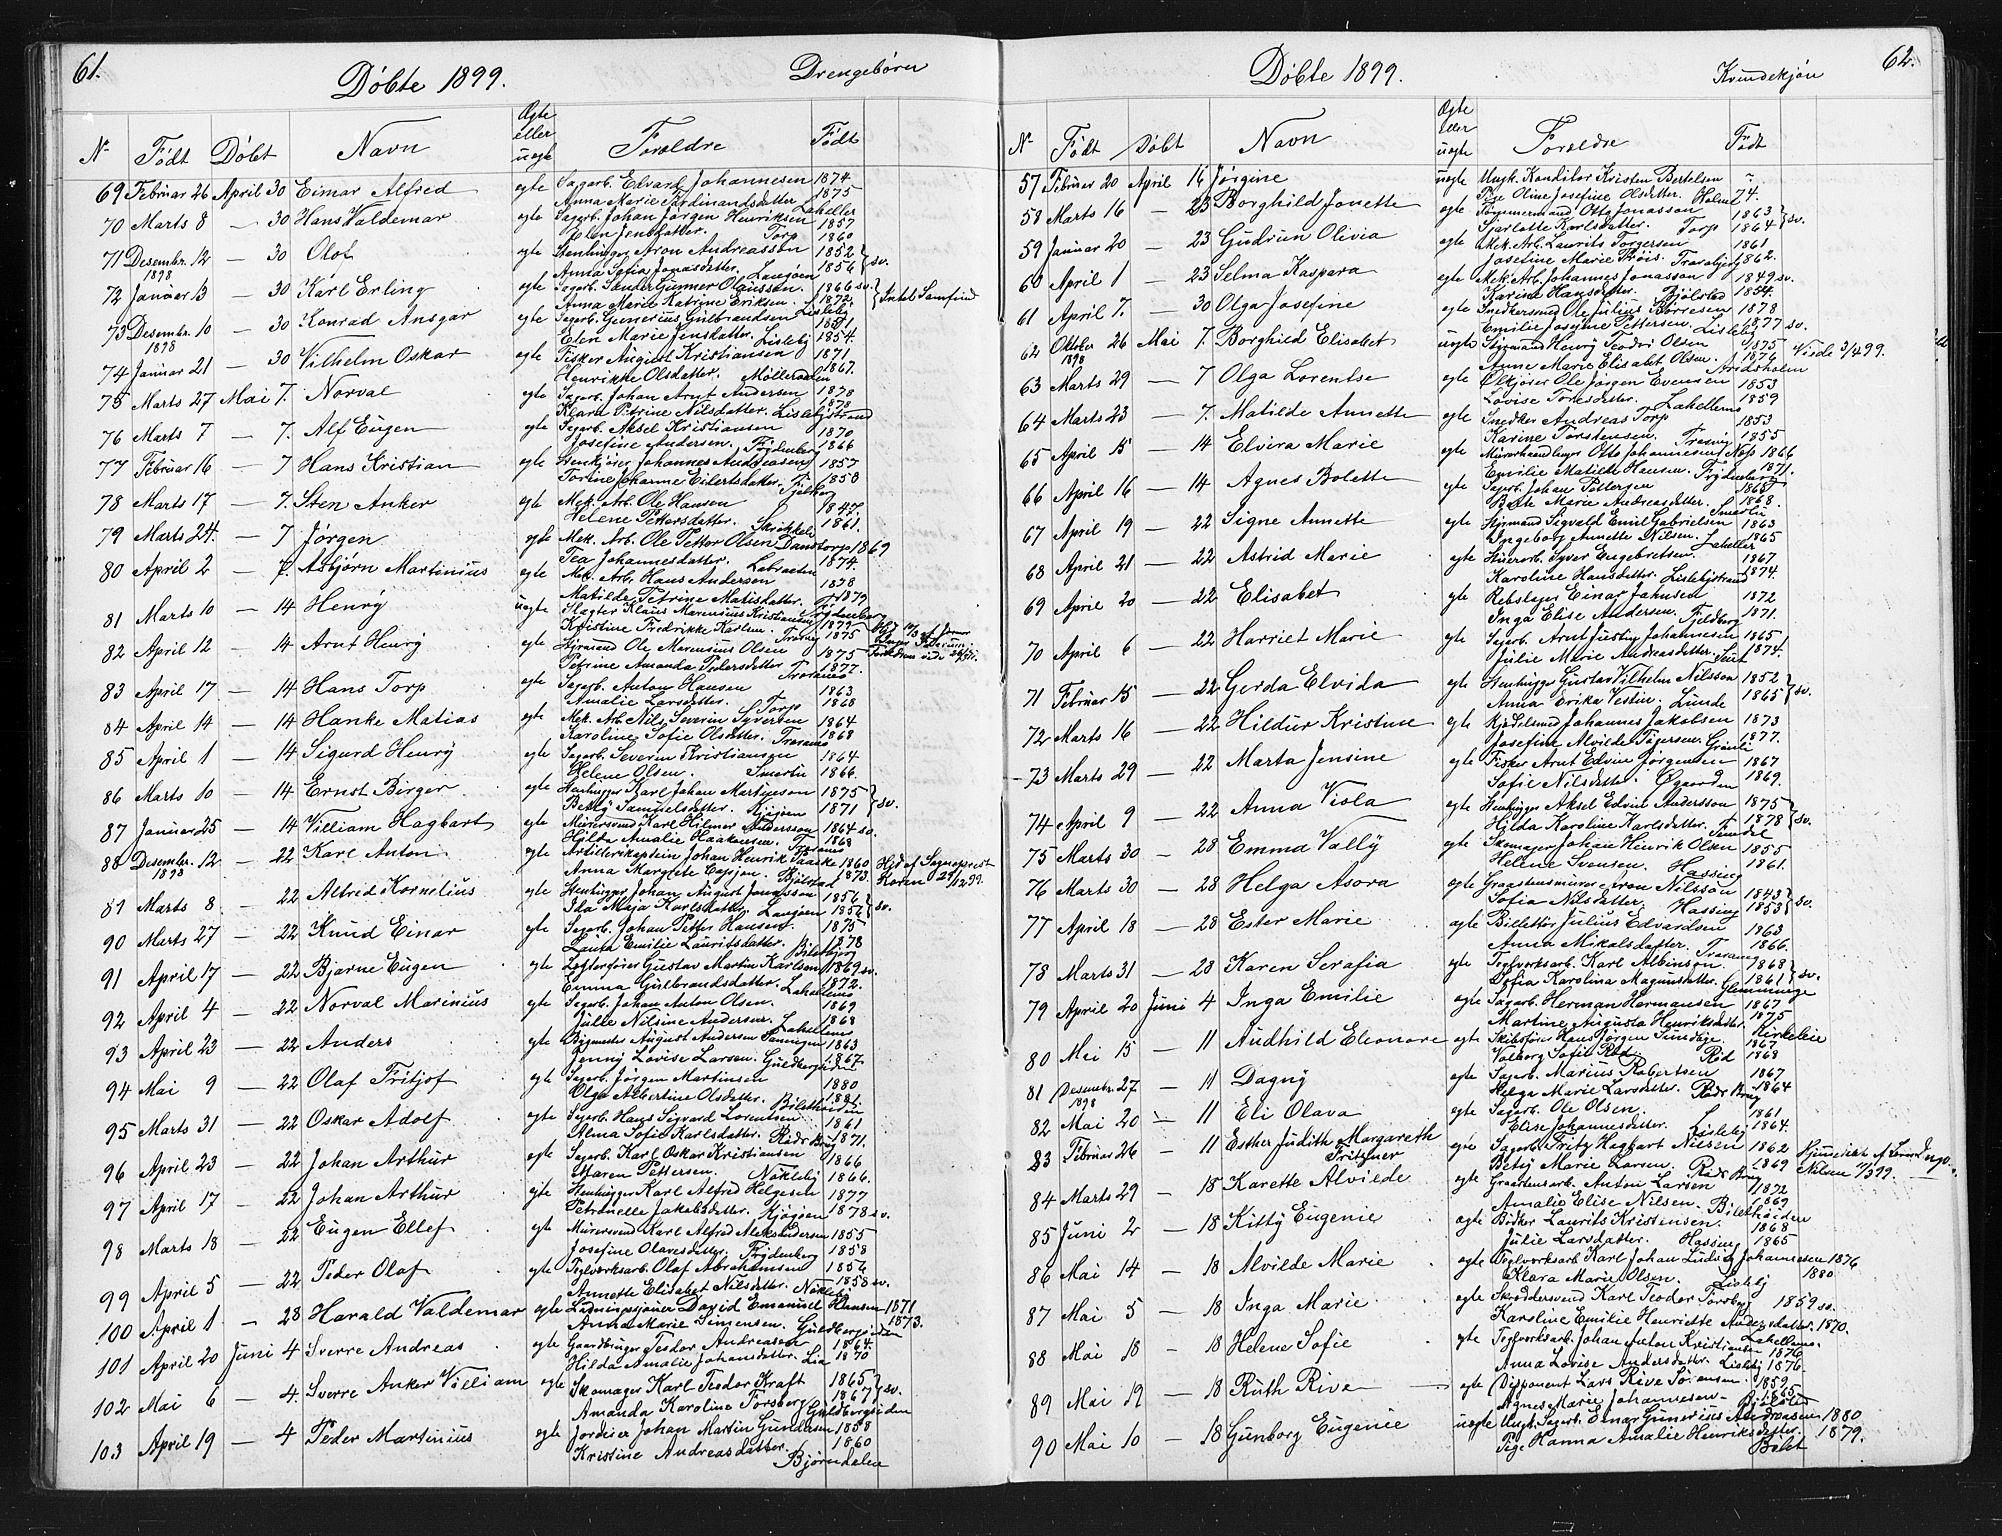 61.
Døbte 1899.
Drengebørn
N. Født Døbt Navn Ægte eller uægte Forældre Født
69 Februar 26 April 30 Einar Alfred egte Sagarb. Edvart Johannesen 1874
Anna Marie Ferdinandsdatter. Lahellen 1875
70 Marts 8 — 30 Hans Valdemar egte Sagarb. Johan Jørgen Henriksen 1857
Elen Jensdatter. Torp 1860
71 Desembr. 12 1898 — 30 Olof egte Stenhugger Aron Andreasson 1852
Anna Sofia Jonasdotter. Langøen 1856 } sv.
72 Januar 13 — 30 Karl Erling egte Sagarb. Gunner Olaussen. 1866 sv.
Anna Marie Katrine Eriksen. 1872 } Intet Samfund
73 Desembr. 10 1898 — 30 Konrad Ansgar egte Sagarb. Gunerius Gulbrandsen Lisleby 1851
Elen Marie Jensdatter. Lisleby 1854.
74 Januar 21 — 30 Vilhelm Oskar egte Fisker August Kristiansen 1871
Henrikke Olsdatter. Møllerdalen 1867.
75 Marts 27 Mai 7. Norval egte Sagarb. Johan Arnt Andersen 1878
Klara Petrine Nilsdatter. Lislebystrand 1878
76 Marts 7 — 7. Alf Eugen egte Sagarb. Aksel Kristiansen 1870
Josefine Andersen. Frydenberg 1866
77 Februar 16 — 7 Hans Kristian egte Stenkjører Johannes Andreasen 1857
Torine Johanne Eilertsdatter. 1858
78 Marts 17 — 7. Sten Anker egte Mek. Arb. Ole Hansen 1847.
Helene Pettersdatter. 1861.
79 Marts 24. — 7 Jørgen egte Mek. Arb. Ole Pettor Olsen, Danstorp 1869
Tea Johannesdatter. Labraaten 1874.
80 April 2 — 7. Asbjørn Martinius egte Mek. Arb. Hans Andersen 1878
Matilde Petrine Matisdatter. 1879
81 Marts 10 — 14 Henry uægte Slagter Klaus Marensius Kristiansen
Kristine Fredrikke Karlsen. Trosvig 1875
82 April 12 — 14 Arnt Henry egte Styrmand Ole Marensius Olsen 1875
Petrine Amanda Pedersdatter. Trosvig 1877.
83 April 17 — 14 Hans Torp egte Sagarb. Anton Hansen 1863
Amalie Larsdatter. Torp 1868
84 April 14 — 14 Hanke Matias egte Mek. Arb. Nils Severin Syversen 1864
Karoline Sofie Olsdatter. 1868
85 April 1 — 14 Sigurd Henry egte Sagarb. Severin Kristiansen 1864
Helene Olsen. Smertu 1866.
86 Marts 10 — 14 Ernst Birger egte Stenhugger Karl Johan Martinson 1875
Betty Samuelsdatter. Kjøjøen 1871 } sv.
87 Januar 25 — 14 Villiam Hagbart egte Murersvend Karl Hilmer Andersson 1864 sv.
Hilda Amalie Haakonsen. 1868
88 Desembr. 12 1898 — 22 Karl Anton egte Artillerikaptein Johan Henrik Paaske 1860
Anna Margrete Cappen. Bjølstad 1873. Hid af Sogneprest Koren 29/12 99.
89 Marts 8 — 22 Alfred Kornelius egte Stenhugger Johan August Jonasson 1856
Ida Maja Karlsdatter. Langøen 1856 } sv.
90 Marts 27 — 22 Knud Einar egte Sagarb. Johan Petter Hansen. 1875
Laura Emilie Lauritsdatter. 1878
91 April 17 — 22 Bjarne Eugen egte Gustav Martin Karlsen 1869 sv.
Emma Gulbrandsdatter. Lahellens 1872.
92 April 4 — 22 Norval Marinius egte Sagarb. Johan Anton Olsen. 1869
Julle Nilsine Andersen. Lahellens 1868
93 April 23 — 22 Anders egte August Andersen 1863
Jenny Lovise Larsen. Guldbergsiden 1867.
94 Mai 9 — 22 Olaf Fritjof egte Sagarb. Jørgen Martinsen 1880
Olga Albertine Olsdatter. 1881.
95 Marts 31 — 22 Oskar Adolf egte Sagarb. Hans Sigvard Lorentsen. 1861
Alma Sofie Karlsdatter. Røds Brug 1871.
96 April 23 — 22 Johan Arthur egte Sagarb. Karl Oskar Kristiansen 1866
Maren Pettersen. Nøkleby 1866.
97 April 17 — 22 Johan Arthur egte Stenhugger Karl Alfred Helgesen 1877
Petronelle Jakobsdatter. Kjøjøen 1878 sv.
98 Marts 18 — 22 Eugen Ellef egte Murersvend Karl Alfred Aleksandersen 1855
Josefine Olavesdatter. Frydenberg 1858
99 April 5 — 22 Peder Olaf egte Teglverksarb. Olaf Abrahamsen 1854
Annette Elisabet Nilsdatter. Nøkleby 1858 sv.
100 April 1 — 28 Harald Valdemar egte David Emanuel Hansen 1871
Anna Marie Simensen. Guldbergsiden 1873.
101 April 20 Juni 4 Sverre Andreas egte Gaardbruger Teodor Andreasen 1864.
Hilda Amalie Johansdatter. Lia 1870
102 Mai 6 — 4. Sverre Anker Villiam egte Skomager Karl Teodor Kraft 1865
Amanda Karoline Forsberg 1867 } sv. Guldbergsiden
103 April 19 — 4 Peder Martinius egte Jordeier Johan Martin Gundersen 1858
Kristine Andreasdatter. 1860
Bjørndalen
62.
Døbte 1899.
Kvindekjøn
N. Født Døbt Navn Ægte eller uægte Forældre Født
57 Februar 20 April 16 Jørgine uægte Ungk. Konditor Kristen Bertelsen ~
Pige Oline Josefine Olsdatter. Holme 74.
58 Marts 16 — 23 Borghild Jonette egte Tømmermand Otto Jonasson 1863
Sjarlotte Karlsdatter. Torp 1864 } sv.
59 Januar 20 — 23 Gudrun Olivia egte Mek. Arb. Laurits Torgersen 1861
Josefine Marie Thóis. Traraberg 1862.
60 April 1 — 23 Selma Kaspara egte Mek. Arb. Johannes Jonasson 1849 sv.
Karine Hansdatter. Bjølstad 1854.
61 April 7. — 30 Olga Josefine egte Snedkersvend Ole Julius Børresen 1878
Emilie Josefine Pettersen. Lisleby 1877 sv.
62 Oktober 26 1898 Mai 7. Borghild Elisabet uægte Styrmand Henry Teodor Olsen 1875
Anne Marie Elisabet Olsen. 1876 Arvidsholm Viede 3/4 99.
63 Marts 29 — 7 Olga Lorentse egte Ølkjører Ole Jørgen Evensen 1853
Lovise Toresdatter. Lahellens 1859
64 Marts 23 — 7. Matilde Annette egte Snedker Andreas Torp 1853
Karine Torstensen. Trosvig 1855
65 April 15 — 14 Elvira Marie egte Murerhandlanger Otto Johannesen Næs 1866
Emilie Matilde Hansen. Frydenberg 1871.
66 April 16 — 14 Agnes Bolette egte Sagarb. Johan Pettersen 1865
Berte Marie Andreasdatter. Smertu 1868.
67 April 19 — 22 Signe Annette egte Styrmand Sigvald Emil Gabrielsen 1863
Ingeborg Annette Nilsen. Lahellen 1865
68 April 21 — 22 Astrid Marie egte Stuerarb. Syver Engebretsen. 1867
Karoline Hansdatter. Lislebystrand 1874.
69 April 20 — 22 Elisabet egte Rebslager Einar Jahnsen 1872
Inga Elise Andersen. Fjeldberg 1871.
70 April 6 — 22 Harriet Marie egte Sagarb. Arnt Justin Johannesen 1865
Julie Marie Andreasdatter. Leret 1874.
71 Februar 15 — 22 Gerda Elvida egte Stenhugger Gustav Vilhelm Nilsson 1852
Anna Erika Vestin. Lunde 1865 } sv.
72 Marts 16 — 22 Hildur Kristine egte Kjedelsmed Johannes Jakobsen 1873
Josefine Alvilde Pagersen. Grønli 1877.
73 Marts 29 — 22 Marta Jensine egte Fisker Arnt Edvin Jørgensen 1867
Sofie Nilsdatter. Øgaarden 1869.
74 April 9 — 22 Anna Viola egte Stenhugger Aksel Edvin Andersson 1875
Hilda Karoline Karlsdatter. 1878 } sv.
75 Marts 30 — 28 Emma Vally egte Skomager Johan Henrik Olsen 1855
Helene Svensen. Hassing 1861.
76 Marts 30 — 28 Helga Asora egte Graastensmurer Aron Nilsson 1843
Sofia Nilsdatter. Hassing 1853 } sv.
77 April 18 — 28 Ester Marie egte Billettør Julius Edvardsen 1863
Anna Mikalsdatter. Trosvig 1866.
78 Marts 31 — 28 Karen Serafia egte Teglverksarb. Karl Albinson 1868
Sofia Karolina Magnusdatter. 1861 } sv. Glemminge
79 April 20 Juni 4 Inga Emilie egte Sagarb. Herman Hermansen 1867
Martine Augusta Henriksdatter. 1875 Kirkeleie
80 Mai 15 — 11 Audhild Eleonore egte Skibsfører Hans Jørgen Sundøe. 1867
Valborg Sofie Rød. Rød 1868
81 Desembr. 27 1898 — 11 Dagny egte Sagarb. Marius Robertsen 1867
Helga Marie Larsdatter. Røds Brug 1864
82 Mai 20 — 11 Eli Olava egte Sagarb. Ole Olsen. 1861
Elise Johannesdatter. Lisleby 1864.
83 Februar 26 — 11 Esther Judith Margareth Fritzner egte Sagarb. Fritz Hagbart Nilsen 1862
Betsy Marie Larsen. Røds Brug 1869
84 Marts 29 — 18 Karette Alvilde egte Graastensarb. Anton Larsen 1872
Amalie Elise Nilsen. 1869
85 Juni 2 — 18 Kitty Eugenie egte Bødker Laurits Kristensen. 1868
Julie Larsdatter. Hassing 1865
86 Mai 14 — 18 Alvilde Marie egte Teglverksarb. Karl Johan Ludvig Johannesen 1876
Klara Marie Olsen. Lisleby 1880
87 Mai 5 — 18 Inga Marie egte Skræddersvend Karl Teodor Forsberg 1859 sv.
Karoline Emilie Henriette Andersdatter. 1870.
88 Mai 18 — 18 Helene Sofie egte Teglverksarb. Johan Anton Kristiansen 1876 Lahellens.
Anna Lovise Andersdatter. Lisleby 1876.
89 Mai 19 — 18 Ruth Rive egte Disponent Lars Rive Sørensen. 1859
Agnes Marie Johannesen. 1865 Bjølstad
90 Mai 10 — 18 Gunborg Eugenie uægte Ungk. Sagarb. Einar Gunerius Andreasen 1880
Pige Hanna Amalie Henriksdatter. 1879.